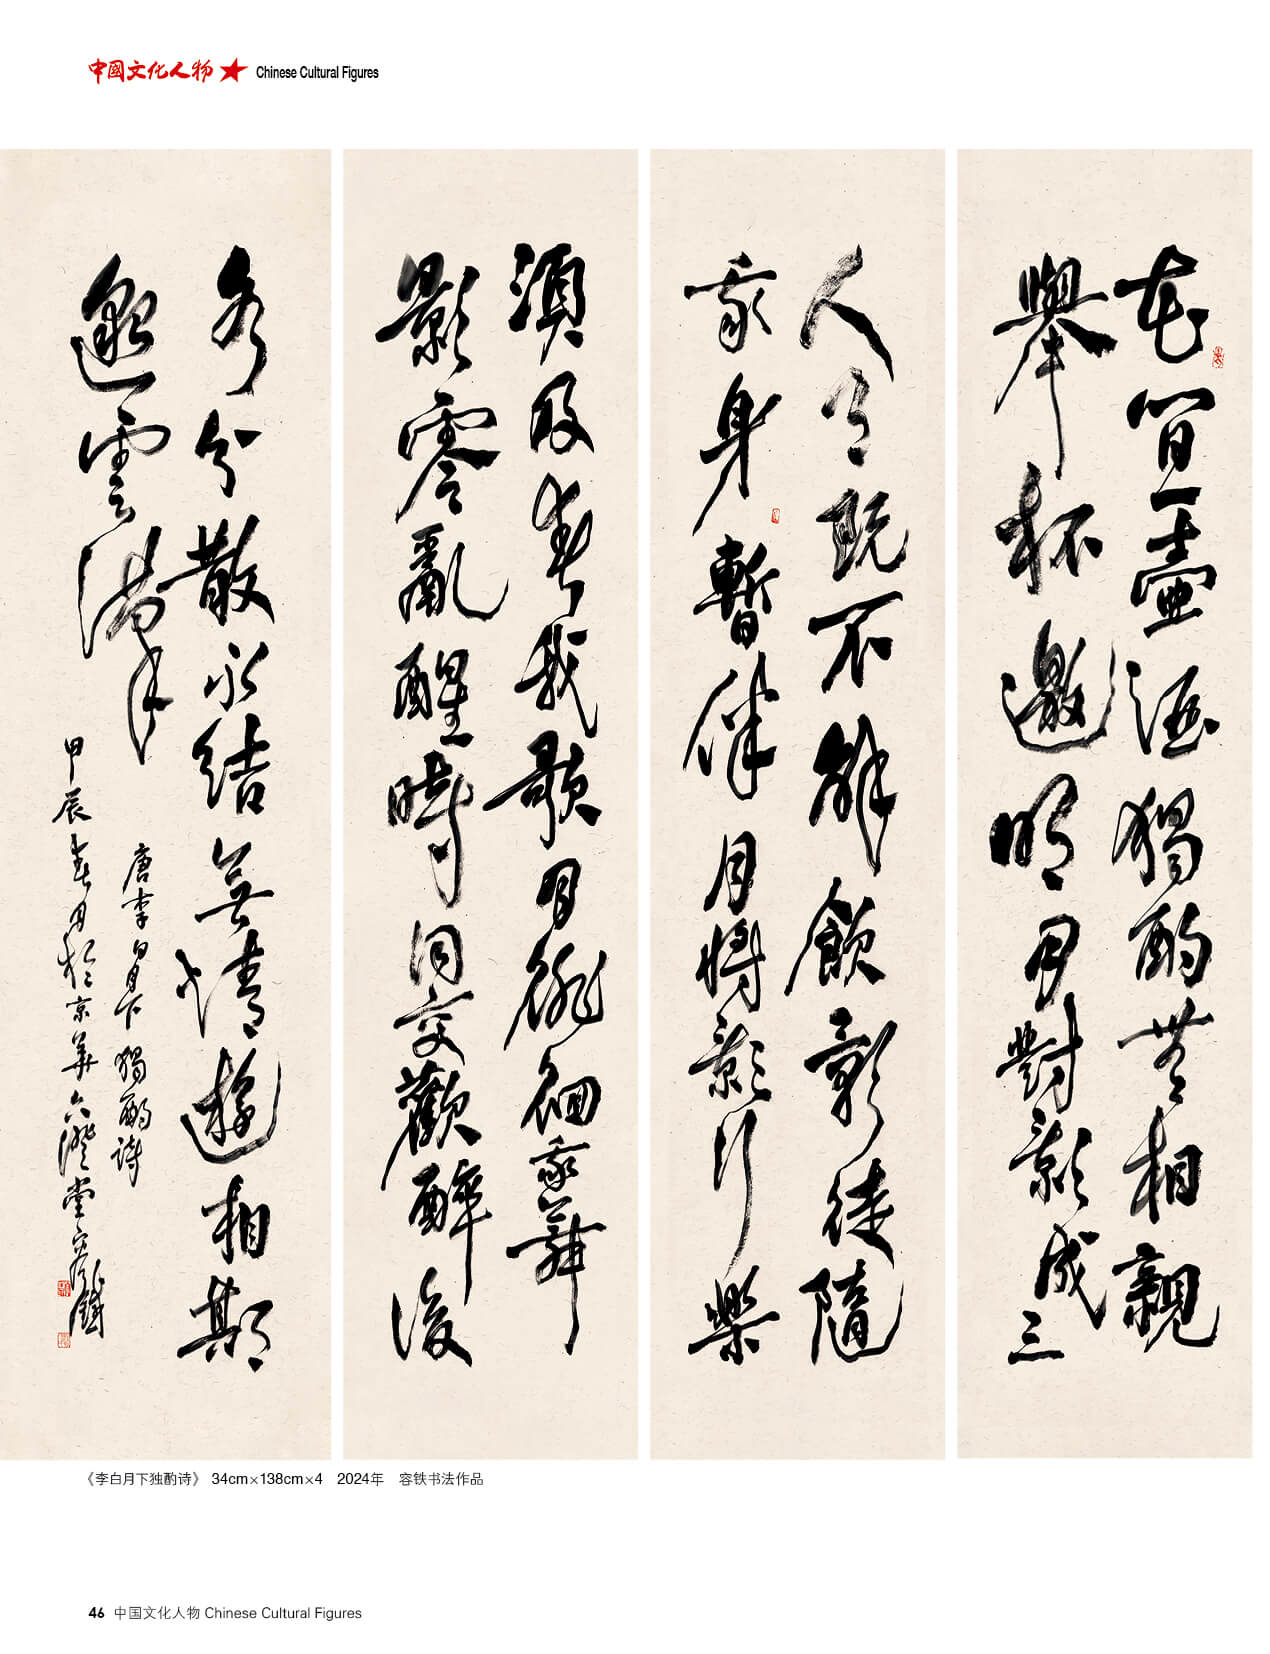 中國文化人物 Chinese Cultural Figures
花間一壺酒獨酌無相親
舉杯邀明月對影成三
人月既不解飲影徒隨
我身暫伴月將影行樂
須及春我歌月徘徊我舞
影零亂醒時同交歡醉後
各分散永結無情遊相期
邈雲漢
唐李白月下獨酌詩
甲辰春月於京華六澄堂容鐵
《李白月下独酌诗》 34cm×138cm×4 2024年 容铁书法作品
46 中国文化人物 Chinese Cultural Figures